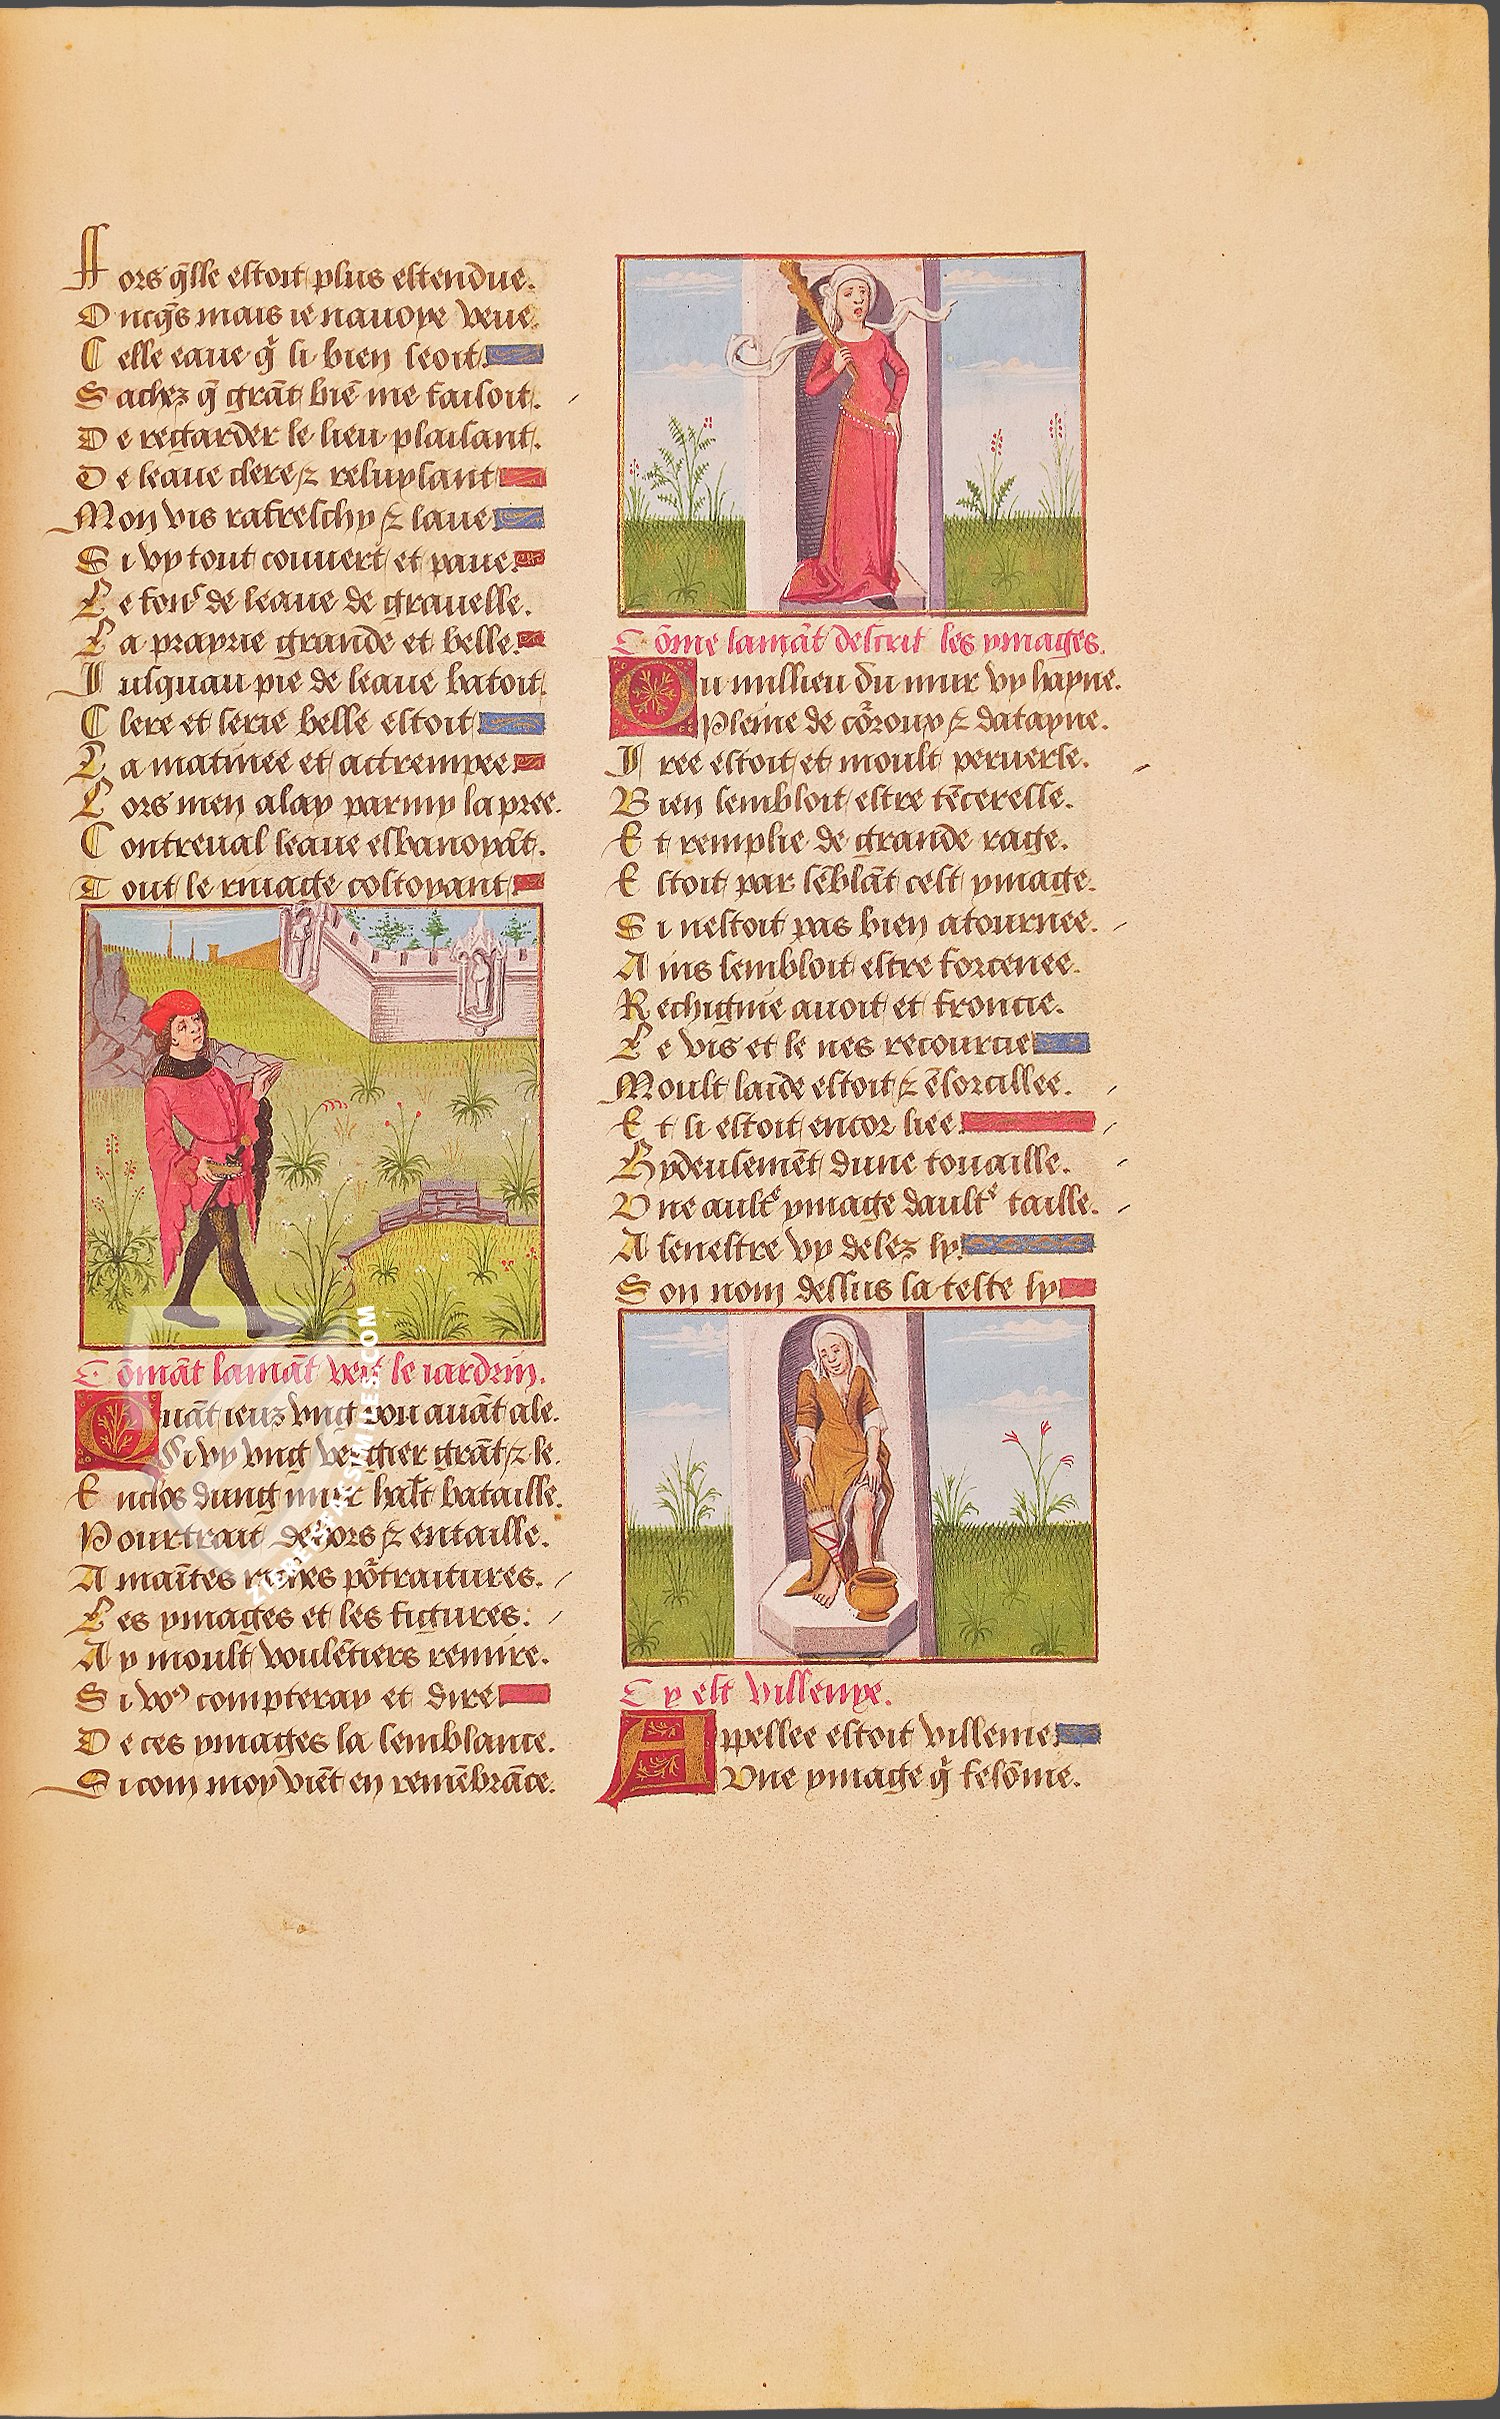 Fors q̃lle estoit plus estendue.
Oncq̃s mais ie nauoye veue.
Celle eaue q̃ si bien seoit.
Sachez q̃ grãt biẽ me faisoit.
De regarder le lieu plaisant.
De leaue clere ⁊ reluysant
Mon vis rafreschy ⁊ laue
Si vy tout couuert et paue.
Le fons de leaue de grauelle.
La praprie grande et belle.
Iusquau pie de leaue batoit.
Clere et serie belle estoit
La matinee et actrempee
Lors men alay parmy la pree.
Contreual leaue esbanoyãt.
Tout le riuage costoyant.
Cõmãt lamãt veit le iardrin.
Quãt ieuz vng pou auãt ale.
Si vy vng vergier grãt ⁊ le.
Enclos dung mur hault bataille.
Pourtrait dehors ⁊ entaille.
A maĩtes riches põtraitures.
Les ymages et les figures.
Ay moult voulẽtiers remire.
Si vo⁹ compteray et dire
De ces ymages la semblance.
Si com moy viẽt en remẽbrãce.
Cõme lamãt descrit les ymages.
Ou millieu du mur vy hayne.
Pleine de cõroux ⁊ datayne.
Iree estoit et moult peruerse.
Bien sembloit estre tẽcerelle.
Et remplie de grande rage.
Estoit par sẽblãt cest ymage.
Si nestoit pas bien atournee.
Ains sembloit estre forcenee.
Rechignie auoit et froncie.
Le vis et le nes recourcie
Moult laide estoit ⁊ ẽsorcillee.
Et si estoit encor liee
Hydeusemẽt dune touaille.
Une aultᵉ ymage daultᵉ taille.
A senestre vy delez ly
Son nom dessus la teste ly
Cy est villenye.
Appellee estoit villenie
Une ymage q̃ felõnie.
ZIEREIS FACSIMILES.COM